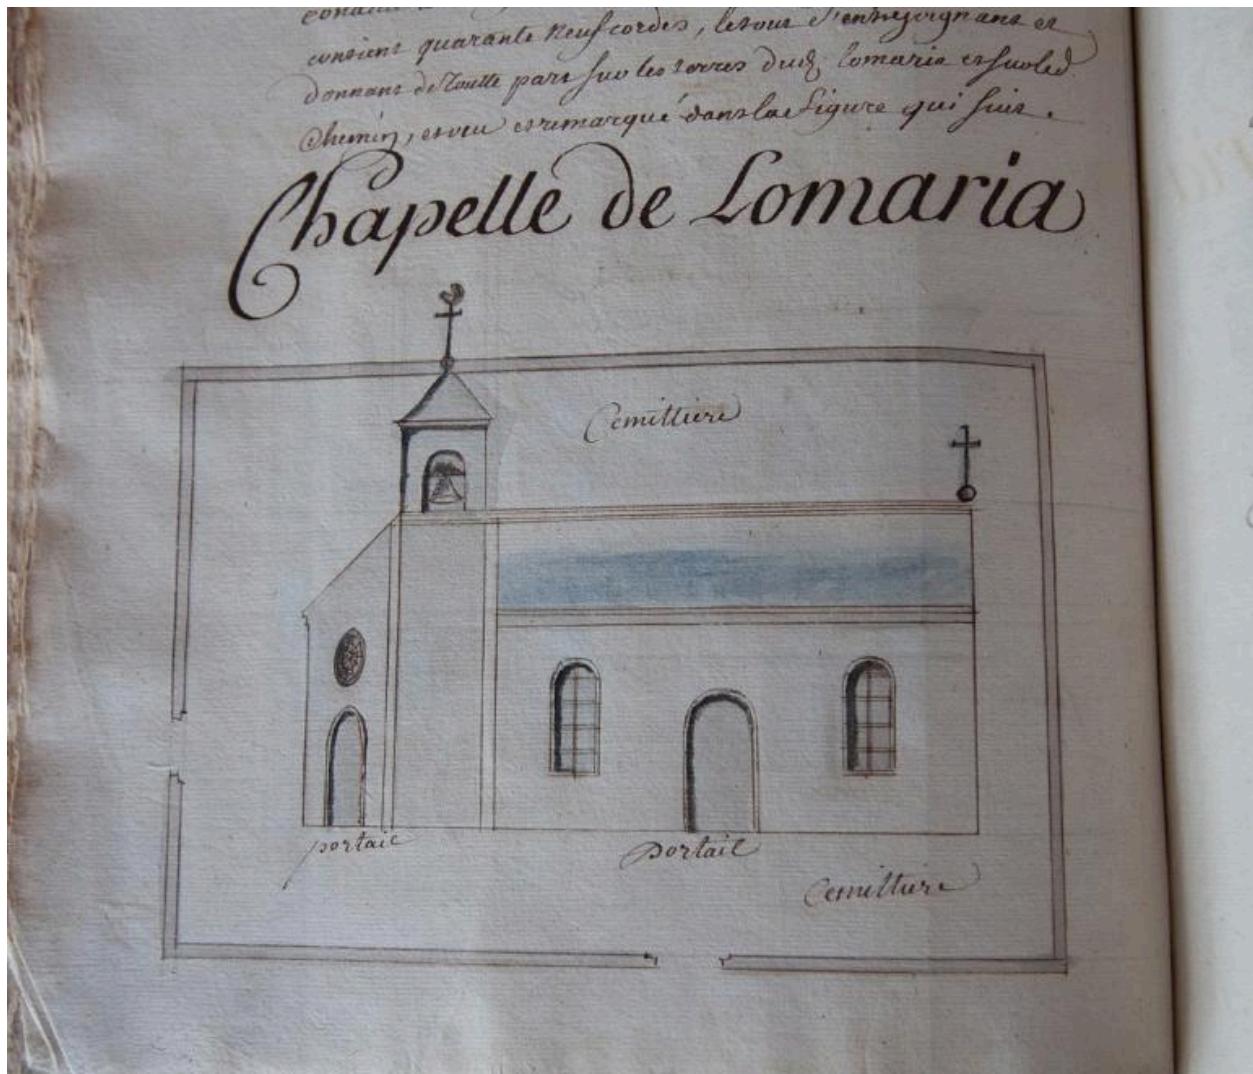 contient quarante neuf cordes, le tour s'entrejoignant et
donnant de toutte part sur les terres dud. lomaria et sur led.
Chemin, et veu et remarqué dans la figure qui suit.
Chapelle de Lomaria
Cemittiere
portail
portail
Cemittiere